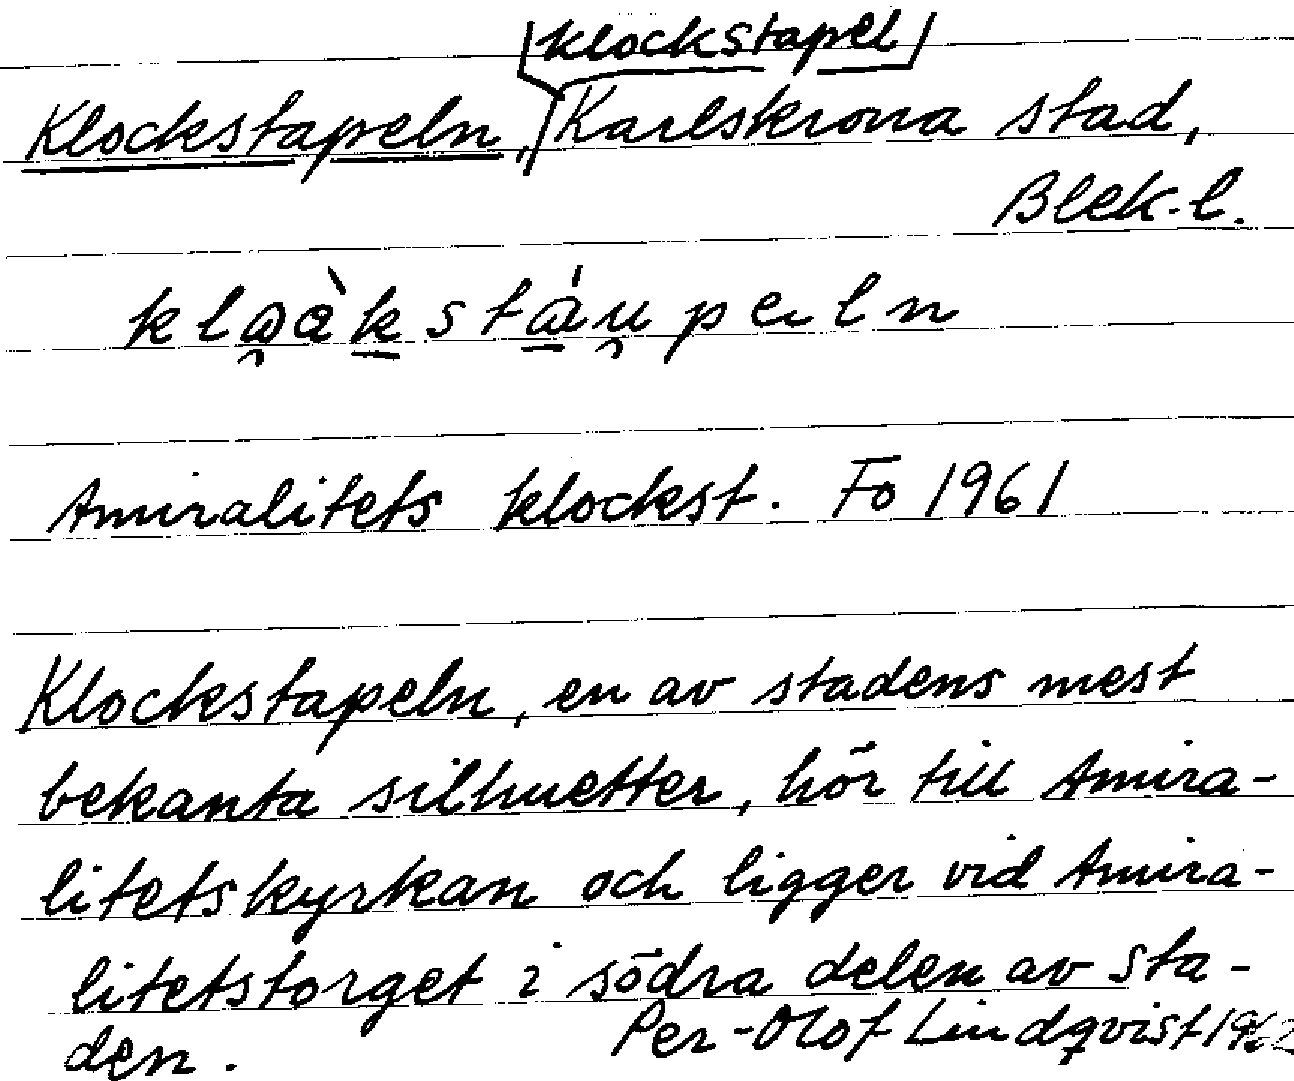 klockstapel
Klockstapeln, Karlskrona stad,
Blek. l.
Amiralitets klockst. Fo 1961
Klockstapeln, en av stadens mest
bekanta silhuetter, hör till Amira-
litetskyrkan och ligger vid Amira-
litetstorget i södra delen av sta-
den. Per-Olof Lindqvist 1962